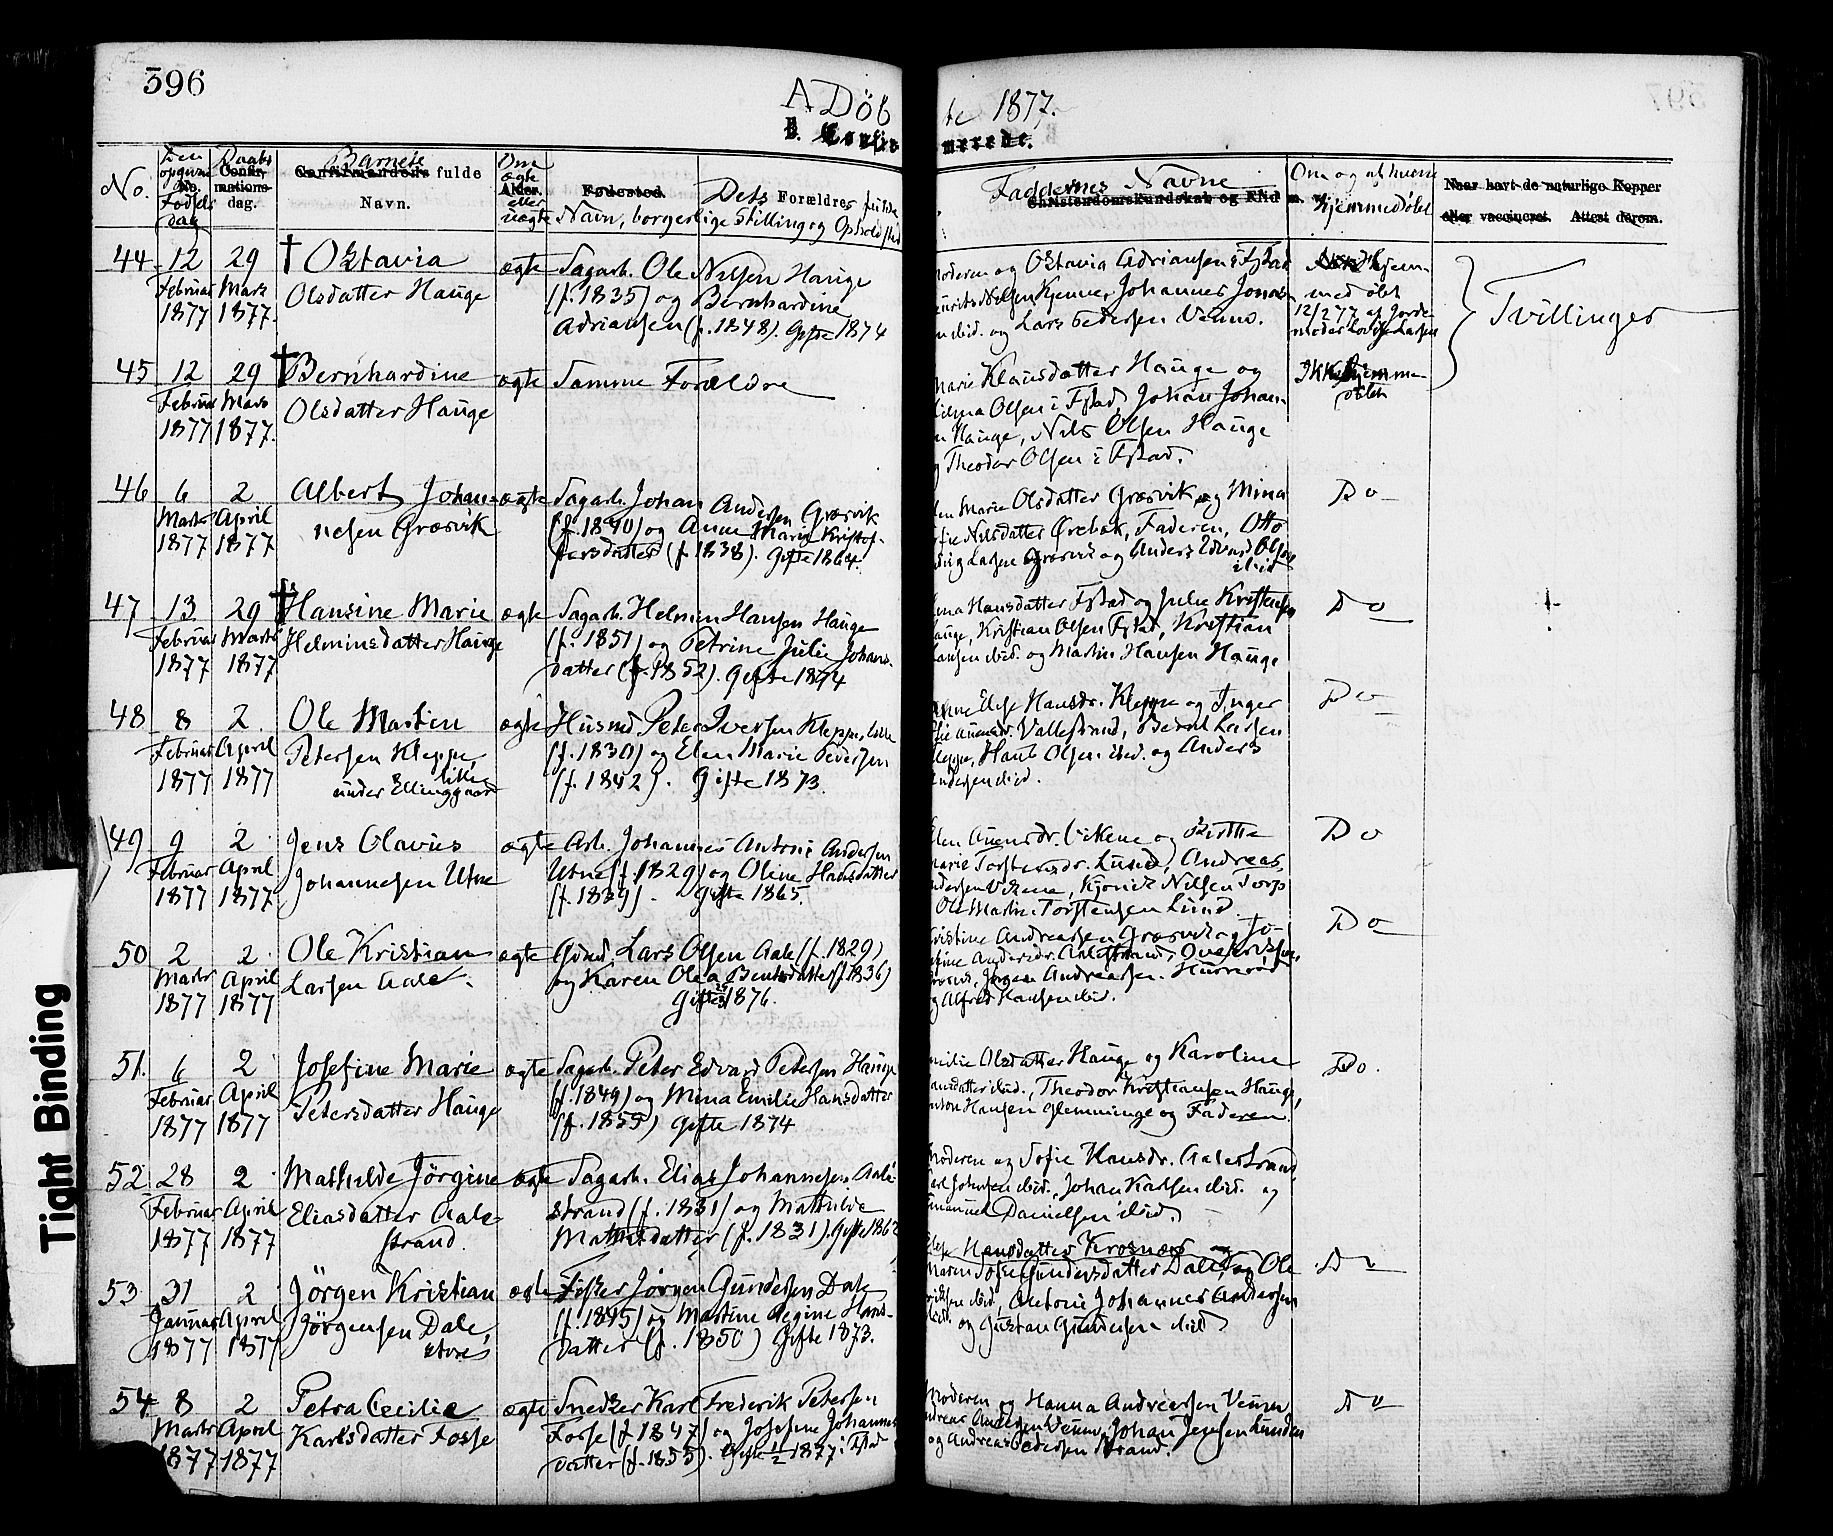 396
A Döbte 1877.
B. Confirmerede.
No.
Den opgivne Fødsels dag
Daabs Confirmations dag.
Barnets Confirmandens fulde Navn.
Om ægte eller uægte
Alder.
Fødested.
Dets Forældres fulde
Navn, borgerlige Stilling og Opholdsted
Faddernes Navne
Christendomskundskab og Flid
Om og af hvem hjemmedøbt
Naar havt de naturlige Kopper
eller vaccineret. Attest derom.
44 12 Februar 1877 29 Marts 1877. † Oktavia
Olsdatter Hauge
ægte Sagarb. Ole Nilsen Hauge
(f. 1835) og Bernhardine
Adriansen (f. 1848). Gifte 1874
Moderen og Oktavia Adriansen i Fstad
Nilsen Kjenne, Johannes Jonas-
ibid. og Lars Pedersen Veum.
Hjem-
med øbt
12/2 77 af Jorde
moder Larsen
Tvillinger
45 12 Februar 1877 29 Mars 1877. † Bernhardine
Olsdatter Hauge
ægte Samme Forældre
Marie Klausdatter Hauge og
Olsen i Fstad, Johan Johan-
Hauge, Nils Olsen Hauge
Theodor Olsen i Fstad.
Ikke hjemme-
døbt
46 6 Marts 1877 2 April 1877 Albert Johan-
nesen Græsvik
ægte Sagarb. Johan Andersen Græsvik
(f. 1840) og Anne Marie Kristof-
fersdatter (f. 1838). Gifte 1864.
Marie Olsdatter Græsvik og Mina
Nilsdatter Ørebæk, Faderen, Otto
Larsen Græsvik og Anders Edvard Olsen
ibid
Do
47 13 Februar 1877 29 Marts 1877 † Hansine Marie
Helminsdatter Hauge
ægte Sagarb. Helmin Hansen Hauge
(f. 1851) og Petrine Julie Johans-
datter (f. 1852). Gifte 1874
Hansdatter Fstad og Julie Kristensen
Hauge, Kristian Olsen Fstad, Kristian
Hansen ibid. og Martin Hansen Hauge
Do
48 8 Februar 1877 2 April 1877 Ole Martin
Petersen Kleppe,
lille
under Elinggaard
ægte Husmd. Peter Iversen Kleppe, lille
(f. 1830) og Elen Marie Pedersen
(f. 1842). Gifte 1873.
Hansdr. Kleppe og Inger
Vallestrand, Bernt Larsen
Kleppe, Hans Olsen ibid. og Anders
Andersen ibid.
Do
49 9 Februar 1877 2 April 1877 Jens Olavus
Johannesen Utne
ægte Arb. Johannes Antoni Andersen
Utne (f. 1829) og Oline Hansdatter
(f. 1839). Gifte 1865.
Elen Auensdr. Vikene og Birthe
Marie Torstensdr. Lund, Andreas
Andersen Vikene, Nilsen Torp
Ole Martin Torstensen Lund.
Do
50 2 Marts 1877 2 April 1877 Ole Kristian
Larsen Aale.
ægte Gdmd. Lars Olsen Aale (f. 1829)
og Karen Olea Bentsdatter (f. 1836)
Gifte 1876.
Kristine Andreassen Græsvik og Jo-
sefine Andersdr. Aalestrand,
Jørgen Andreassen
og Alfred Hansen ibid.
Do
51. 6 Februar 1877 2 April 1877 Josefine Marie
Petersdatter Hauge
ægte Sagarb. Peter Edvard Petersen Hauge
(f. 1849) og Mina Emilie Hansdatter
(f. 1855) Gifte 1874
Emilie Olsdatter Hauge og Karoline
Hansdatter ibid., Theodor Kristiansen Hauge,
Hansen Glemminge og Faderen
Do.
52 28 Februar 1877 2 April 1877 Mathilde Jörgine
Eliasdatter Aale-
strand.
ægte Sagarb. Elias Johannesen Aale-
strand (f. 1831) og Mathilde
Mathisdatter (f. 1831). Gifte
Moderen og Sofie Hansdr. Aalestrand,
Johnsen ibid., Johan Karlsen ibid. og
Emanuel Danielsen ibid.
53 31 Januar 1877 2 April 1877 Jörgen Kristian
Jörgensen Dale,
store
ægte Fisker Jörgen Gundersen Dale
(f. 1845) og Martine Regine Hans-
datter (f. 1850) Gifte 1873.
Hansdatter Krosnæs og
Maren Sofie Gundersdatter Dale, og Ole
Eriksen ibid, Antoni Johannes Andersen
ibid. og Gustav Gundersen ibid
Do
54 8 Marts 1877 2 April 1877 Petra Cecilie
Karlsdatter Fosse
ægte Snedker Karl Frederik Petersen
Fosse (f. 1847) og Josefine Johannes-
datter (f. 1855). Gifte 1/2 1877 i Fstad
Moderen og Hanna Andreassen Veum
Andreas Andersen Veum, Johan Jensen Lunden
og Andreas Pedersen Strand.
Do
Tight Binding